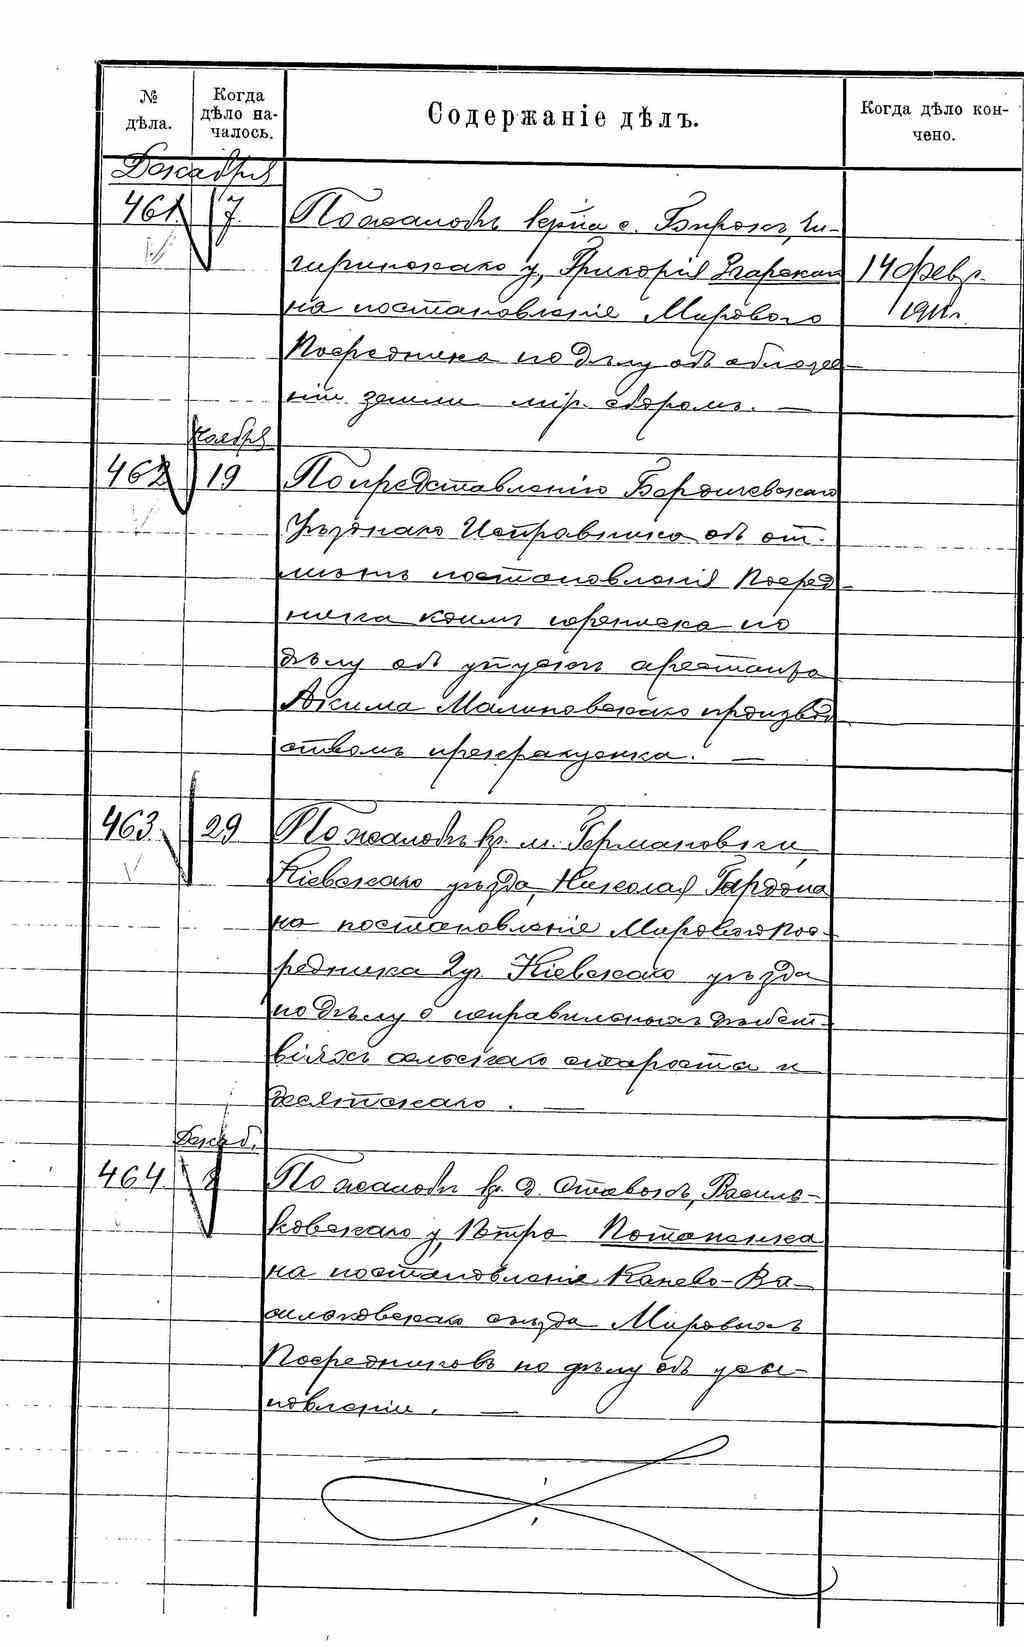 № дѣла.
Когда дѣло на-чалось.
Содержаніе дѣлъ.
Когда дѣло кон-чено.
Декабря
461. 7. По жалобѣ с. Чи-
гиринскаго у, Григорія 14 февр.
на постановленіе Мирового 1911г.
Посредника по дѣлу объ обложе-
ніи земли мір. сборомъ. —
Ноября
462 19 По представленію Бердичевскаго
Уѣзднаго Исправника объ от-
мѣнѣ постановленія Посред-
ника коимъ переписка по
дѣлу объ упускѣ арестанта
Акима Малиновскаго производ-
ствомъ прекращена. —
463. 29 По жалобѣ кр. м. Германовки,
Кіевскаго уѣзда, Николая Гардона
на постановленіе Мирового Пос-
редника 2 уч. Кіевскаго уѣзда
по дѣлу о неправильныхъ дѣйст-
віяхъ сельскаго старосты и
десятскаго. —
Декаб.
464. 8 По жалобѣ кр. д. Ставокъ, Василь-
ковскаго у, Петра Потапенка
на постановленіе Канево-Ва-
сильковскаго съѣзда Мировыхъ
Посредниковъ по дѣлу объ усы-
новленіи. —